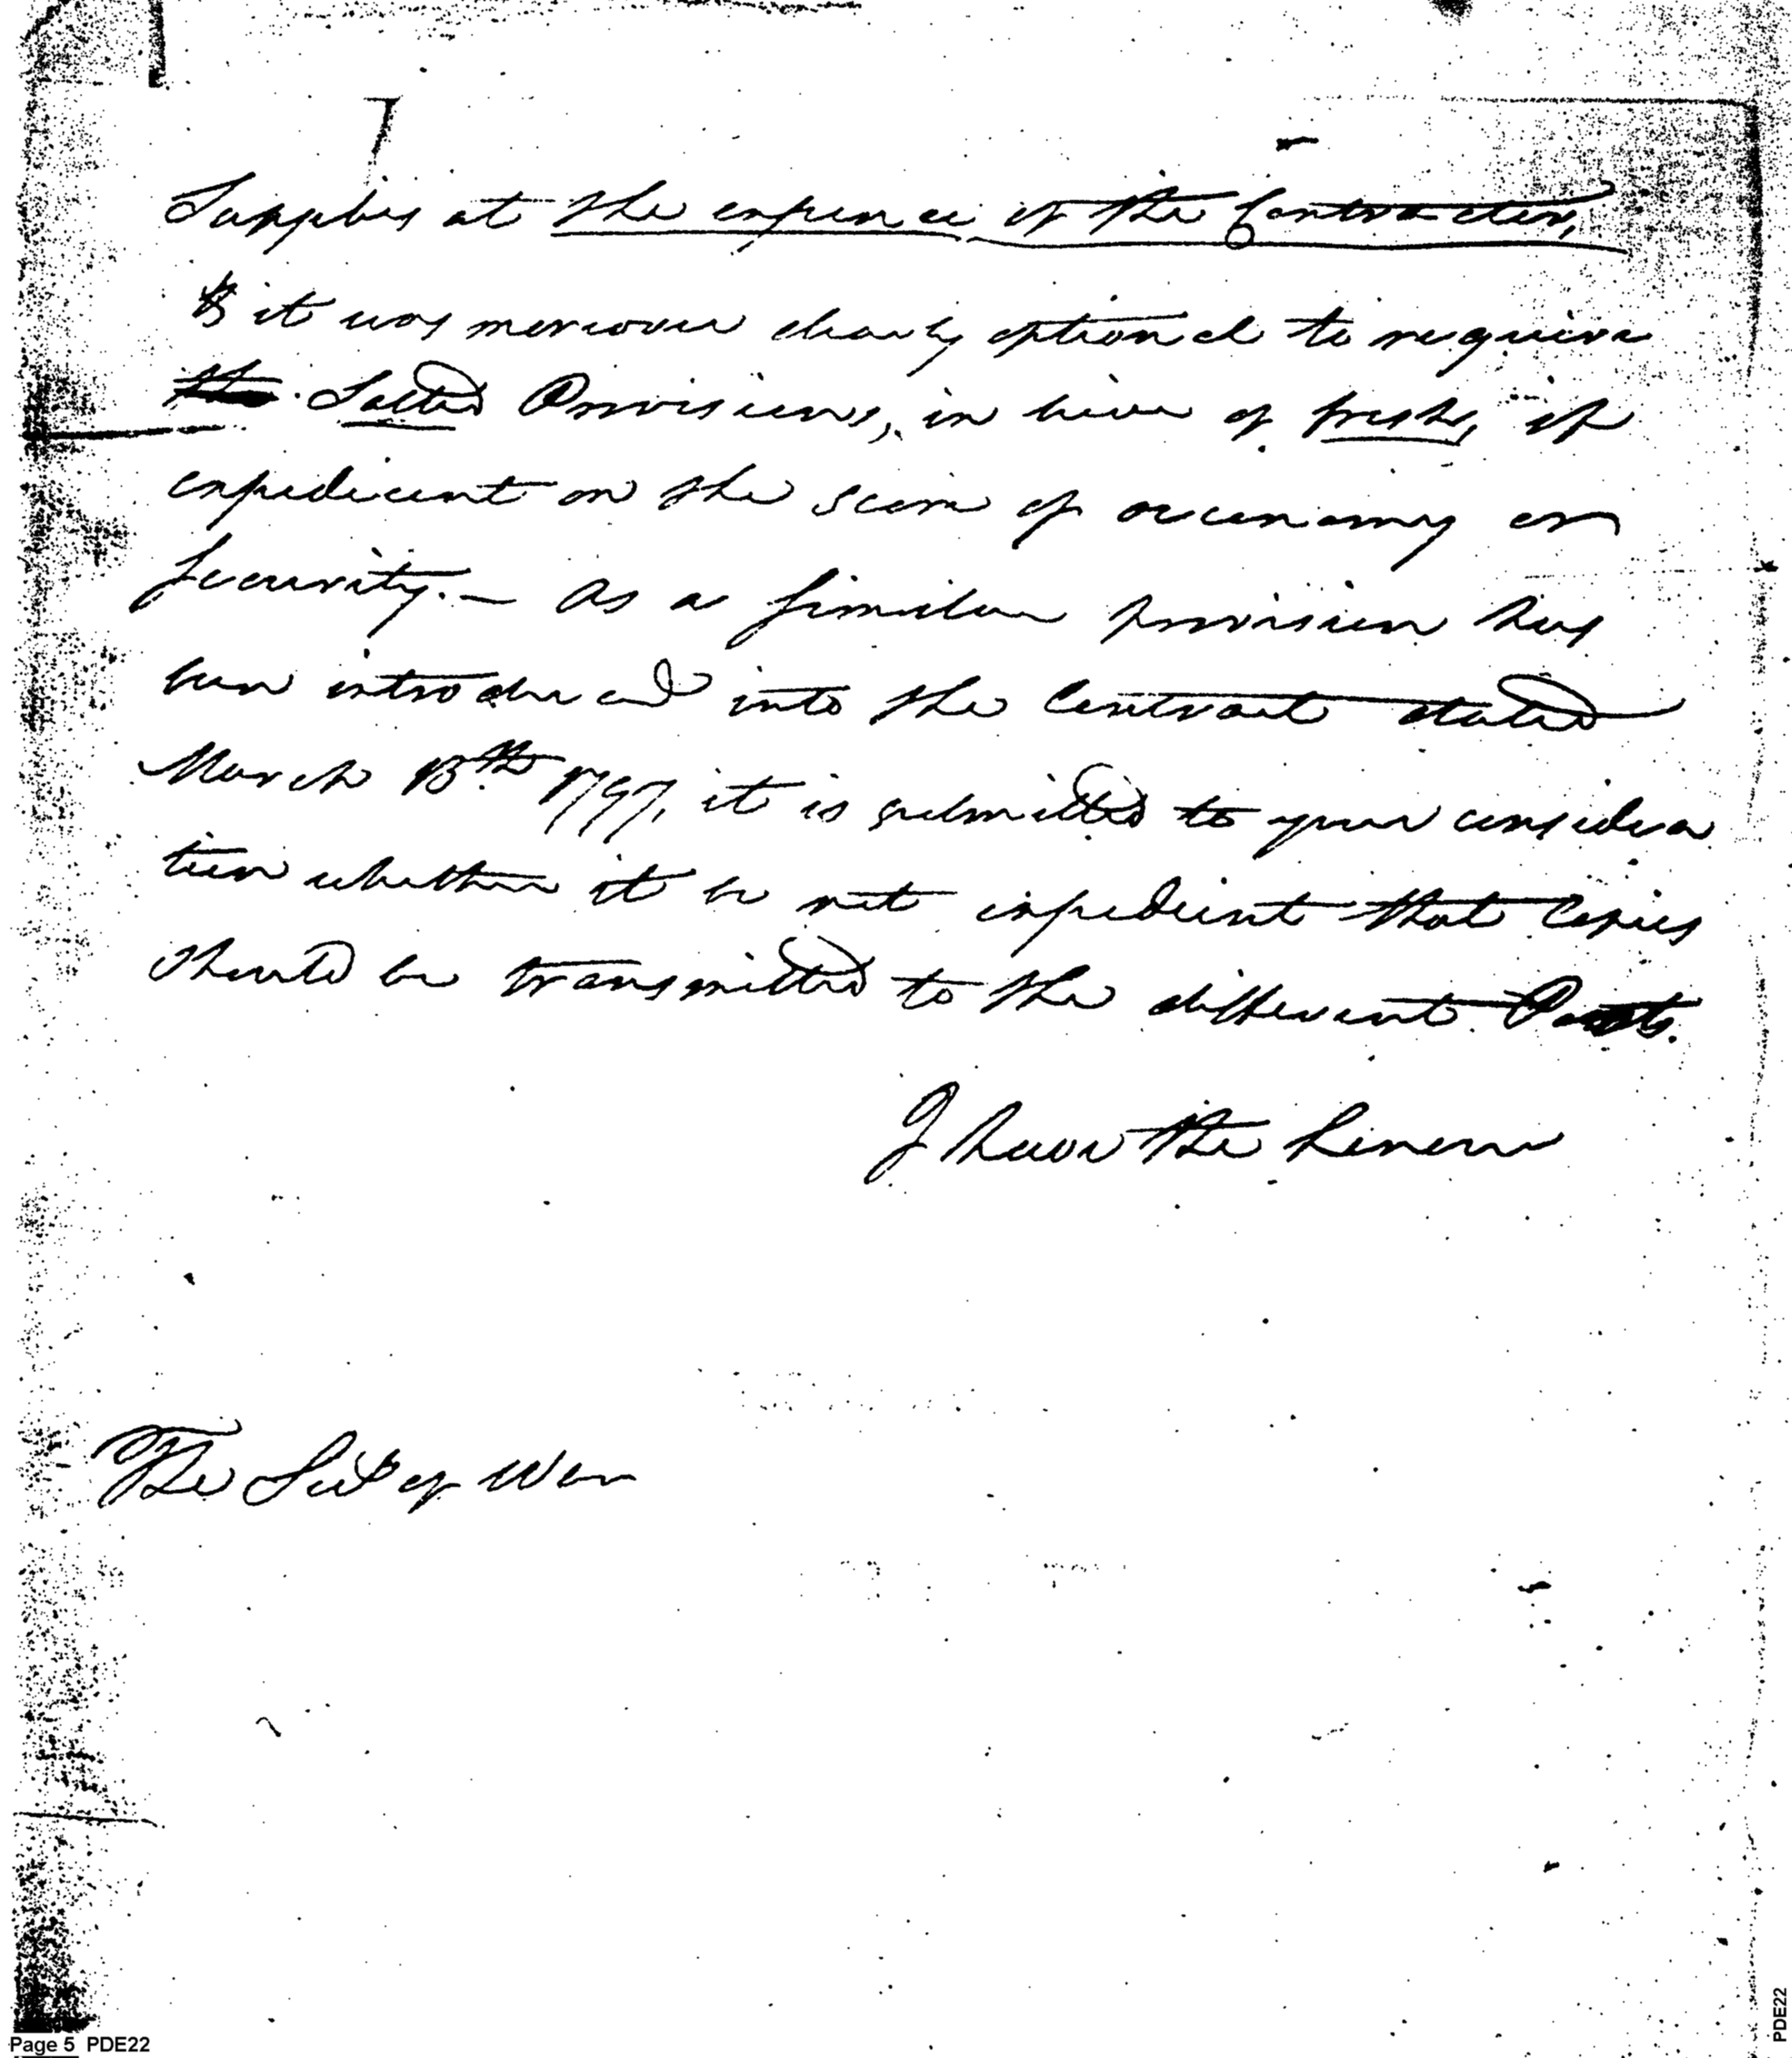 Supplies at the expence of the Contractor,
& it was moreover clearly optional to require
the Salted Provisions, in lieu of fresh, if
expedient on the score of oeconomy or
Security. — As a similar provision has
been introduced into the Contract dated
March 13th 1797, it is submitted to your considera
tion whether it be not expedient that Copies
should be transmitted to the different Posts.
I have the honour
The Secy of War
Page 5 PDE22
PDE22